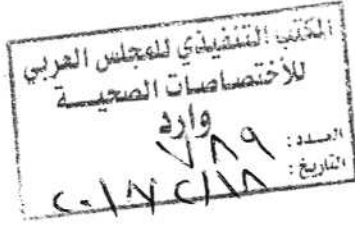 المكتب التنفيذي للمجلس العربي
للأختصاصات الصحيــة
وارد
العـدد : ٧٨٩
التاريخ : ٢٠١٧/٢/١٨